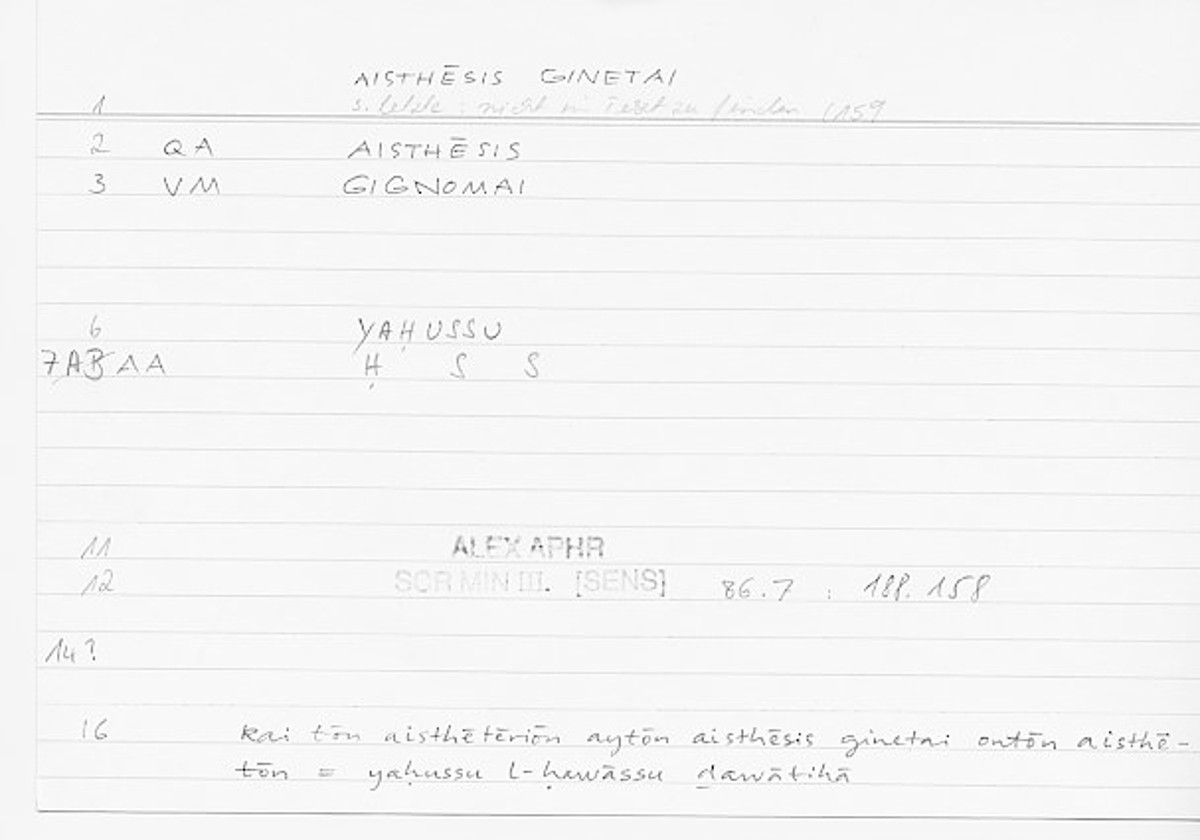 AISTHĒSIS GINETAI
1 s. letzte : nicht im Text zu finden (159
2 QA AISTHĒSIS
3 VM GIGNOMAI
6 YAḤUSSU
7 AB AA Ḥ S S
11 ALEX APHR
12 SCR MIN III. [SENS] 86.7 : 188.158
14?
16 kai tōn aisthētēriōn aytōn aisthēsis ginetai ontōn aisthē-
tōn = yaḥussu l-ḥawāssu ḏawātihā